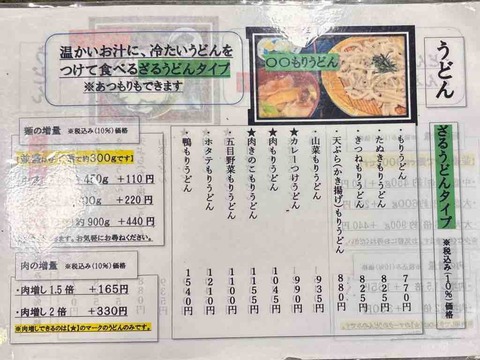 温かいお汁に、冷たいうどんを
つけて食べるざるうどんタイプ
※あつもりもできます
〇〇もりうどん
うどん
ざるうどんタイプ
※税込み(10%)価格
・もりうどん 770
・たぬきもりうどん 825
・きつねもりうどん 825
・天ぷら(かき揚げ)もりうどん 880
・山菜もりうどん 935
★カレーつけうどん 990
★肉もりうどん 1045
★肉きのこもりうどん 1155
・五目野菜もりうどん 1100
・ホタテもりうどん 1210
★鴨もりうどん 1540
麺の増量 ※税込み(10%)価格
約300gです
+110円
+220円
約900g +440円
ます。お気軽にお尋ねください。
肉の増量 ※税込み(10%)価格
・肉増し1.5倍 +165円
・肉増し2倍 +330円
※肉増しできるのは【★】のマークのうどんのみです。